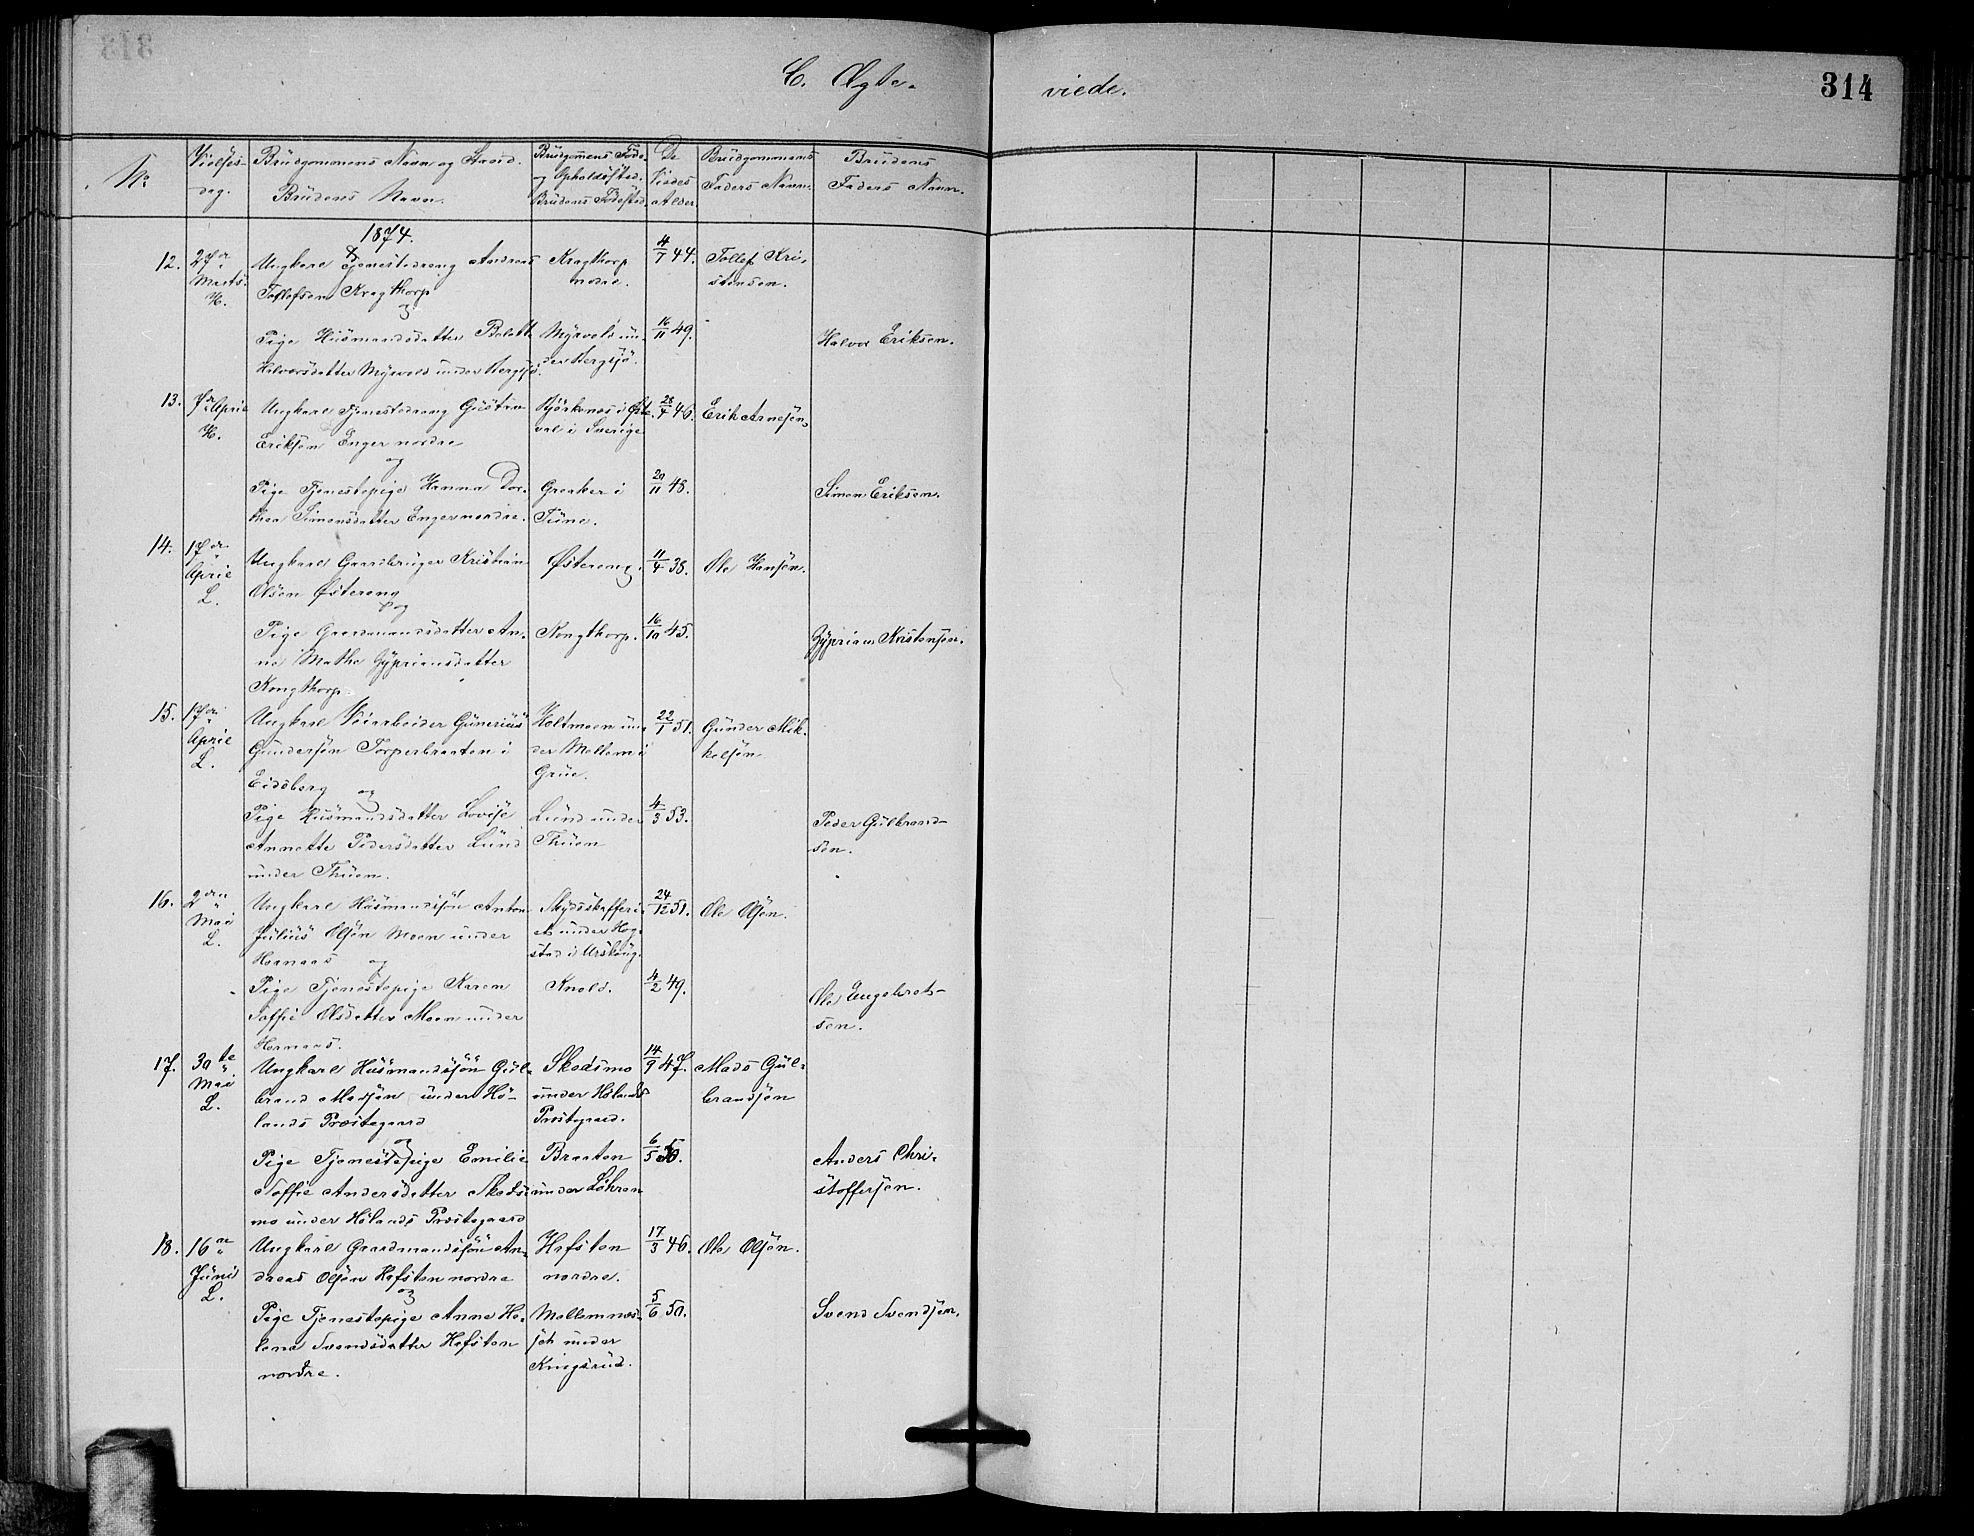 C. Ægte-
viede.
314
No
Vielses-
dag.
Brudgommens Navn og Stand.
Brudens Navn.
Brudgomens Føde-
og Opholdssted.
Brudens Fødested.
De
Viedes
Alder
Brudgommens
Faders Navn.
Brudens
Faders Navn.
1874.
12.
27de
Marts.
H.
Ungkarl & Tjenestedreng Andreas
Tollefsen Kragthorp
og
Kragthorp
nodre.
4/7 44.
Tollef Kri-
stensen.
Pige Husmandsdatter Bolett
Halvorsdatter Myrvold under Hergsjø.
Myrvold un-
der Hergsjø.
16/11 49.
Halvor Eriksen.
13.
7de April
H.
Ungkarl Tjenestedreng Gustav
Eriksøn Enger nordre
og
Bjørkenæs i Øst-
val i Sverige
28/4 46.
Erik Arnesøn
Pige Tjenestepige Hanna Dor-
thea Simensdatter Enger nordre.
Greaker i
Tune.
20/11 48.
Simen Eriksen.
14.
17de
April
L.
Ungkarl Gaardbruger Kristian
Olsen Østereng
og
Østereng.
11/4 38.
Ole Hansen.
Pige Gaardmandsdatter An-
ne Mathe Zypriansdatter
Kongthorp.
Kongthorp.
16/10 45.
Zyprian Kristensen.
15.
17de
April
L.
Ungkarl Veiarbeider Gunerius
Gundersøn Torperbraaten i
Eidsberg
og
Holtmoen un-
der Mellem i
Grue.
22/1 51.
Gunder Mik-
kelsøn
Pige Husmandsdatter Lovise
Annette Pedersdatter Lund
under Thuen.
Lund under
Thuen
4/3 53.
Peder Gulbrand-
sen.
16.
2den
Mai
L.
Ungkarl Husmandssøn Anton
Julius Olsøn Moen under
Hornaas
og
Skydsskafferi-
et under Hog-
stad i Urskoug.
24/12 51.
Ole Olsen.
Pige Tjenestepige Karen
Soffie Olsdatter Moen under
Hornaas.
Knold.
4/2 49.
Ole Engebret-
sen.
17.
30te
Mai
L.
Ungkarl Husmandssøn Gul-
brand Madsøn under Hø-
lands Præstegaard
og
Skodsmo
under Hølands
Præstegaard.
14/9 47.
Mads Gul-
brandsøn
Pige Tjenestepige Emilie
Soffie Andersdatter Skods-
mo under Hølands Præstegaard
Braaten
under Løkren
6/5 50.
Anders Chri-
stoffersen.
18.
16de
Juni
L.
Ungkarl Gaardmandssøn An-
dreas Olsøn Hofsten nordre
og
Hofsten
nordre.
17/3 46.
Ole Olsøn.
Pige Tjenestepige Anne He-
lene Svendsdatter Hofsten
nordre.
Mellemnæs-
jet under
Kringsrud.
5/6 50.
Svend Svendsen.